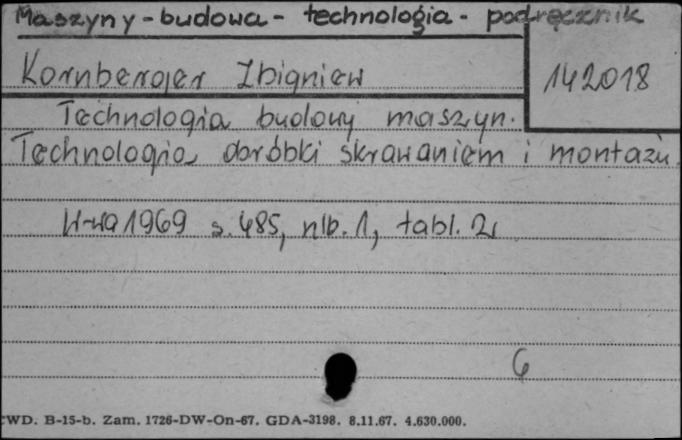 Maszyny - budowa - technologia - podręcznik
Kornberger Zbigniew
142018
Technologia budowy maszyn.
Technologia obróbki skrawaniem i montażu.
W-wa 1969 s. 485, nlb. 1, tabl. 2
6
CWD. B-15-b. Zam. 1726-DW-On-67. GDA-3198. 8.11.67. 4.630.000.